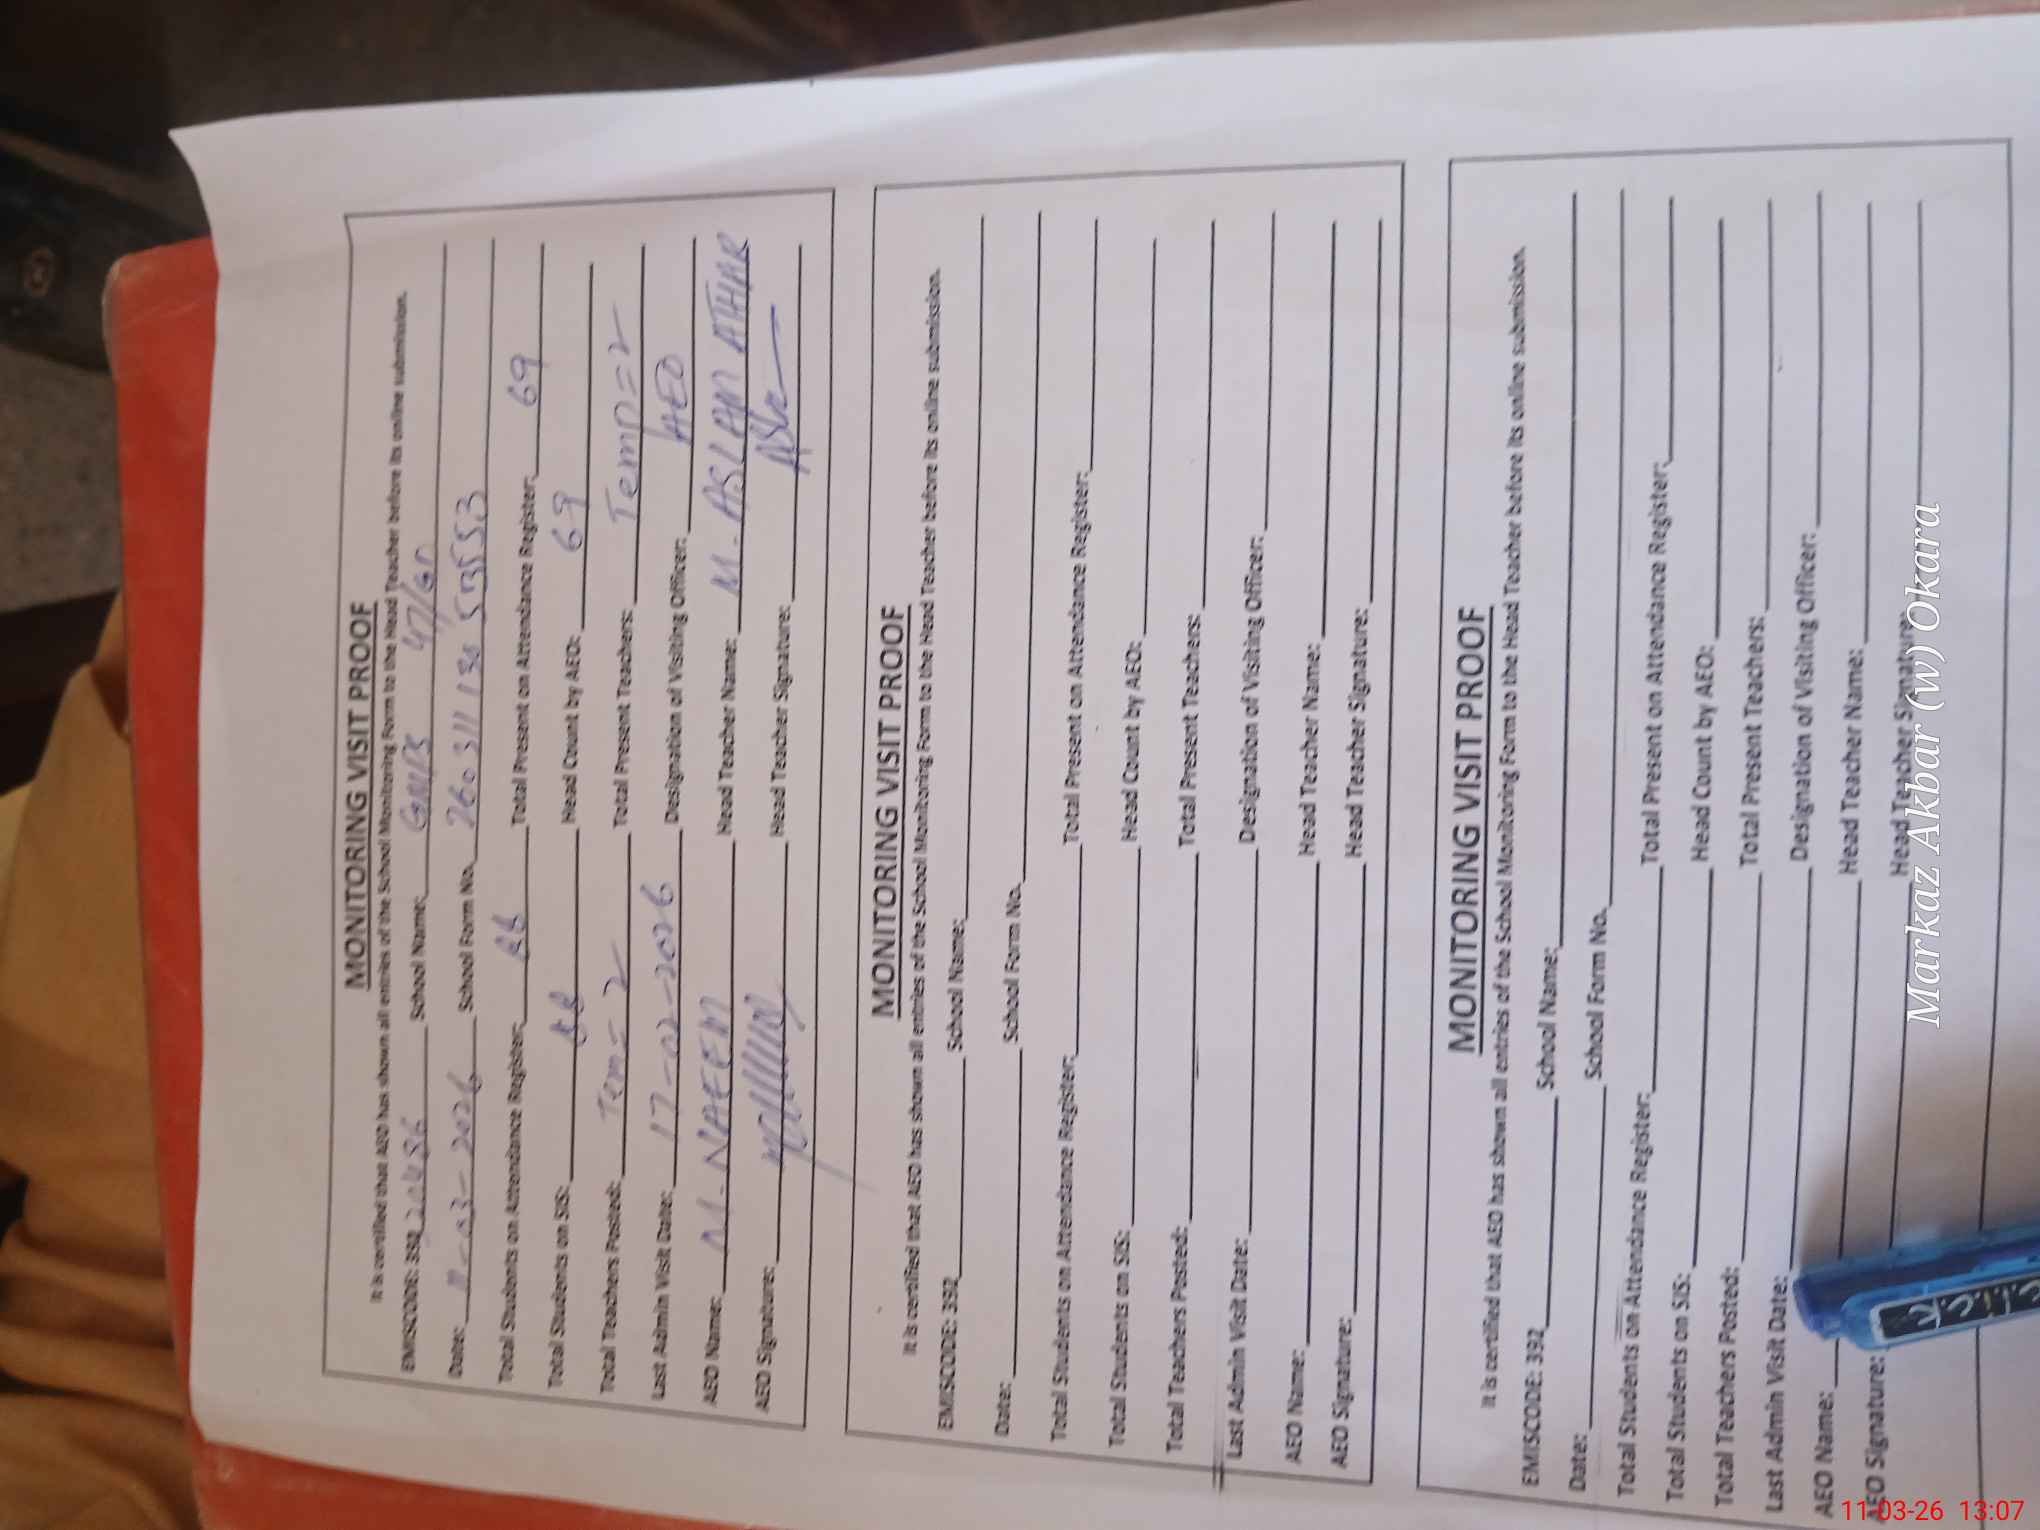 MONITORING VISIT PROOF
It is certified that AEO has shown all entries of the School Monitoring Form to the Head Teacher before its online submission.
EMISCODE: 392 20486 School Name: GMPS 47/GD
Date: 11-03-2026 School Form No. 260311130 53553
Total Students on Attendance Register: 88 Total Present on Attendance Register: 69
Total Students on SIS: 88 Head Count by AEO: 69
Total Teachers Posted: Tem=2 Total Present Teachers: Temp=2
Last Admin Visit Date: 17-02-2026 Designation of Visiting Officer: AEO
AEO Name: M-NAEEM Head Teacher Name: M-ASLAM ATHAR
AEO Signature: Head Teacher Signature:
MONITORING VISIT PROOF
It is certified that AEO has shown all entries of the School Monitoring Form to the Head Teacher before its online submission.
EMISCODE: 392 School Name:
Date: School Form No.
Total Students on Attendance Register: Total Present on Attendance Register:
Total Students on SIS: Head Count by AEO:
Total Teachers Posted: Total Present Teachers:
Last Admin Visit Date: Designation of Visiting Officer:
AEO Name: Head Teacher Name:
AEO Signature: Head Teacher Signature:
MONITORING VISIT PROOF
It is certified that AEO has shown all entries of the School Monitoring Form to the Head Teacher before its online submission.
EMISCODE: 392 School Name:
Date: School Form No.
Total Students on Attendance Register: Total Present on Attendance Register:
Total Students on SIS: Head Count by AEO:
Total Teachers Posted: Total Present Teachers:
Last Admin Visit Date: Designation of Visiting Officer:
AEO Name: Head Teacher Name:
AEO Signature: Head Teacher Signature:
Markaz Akbar (w) Okara
11-03-26 13:07